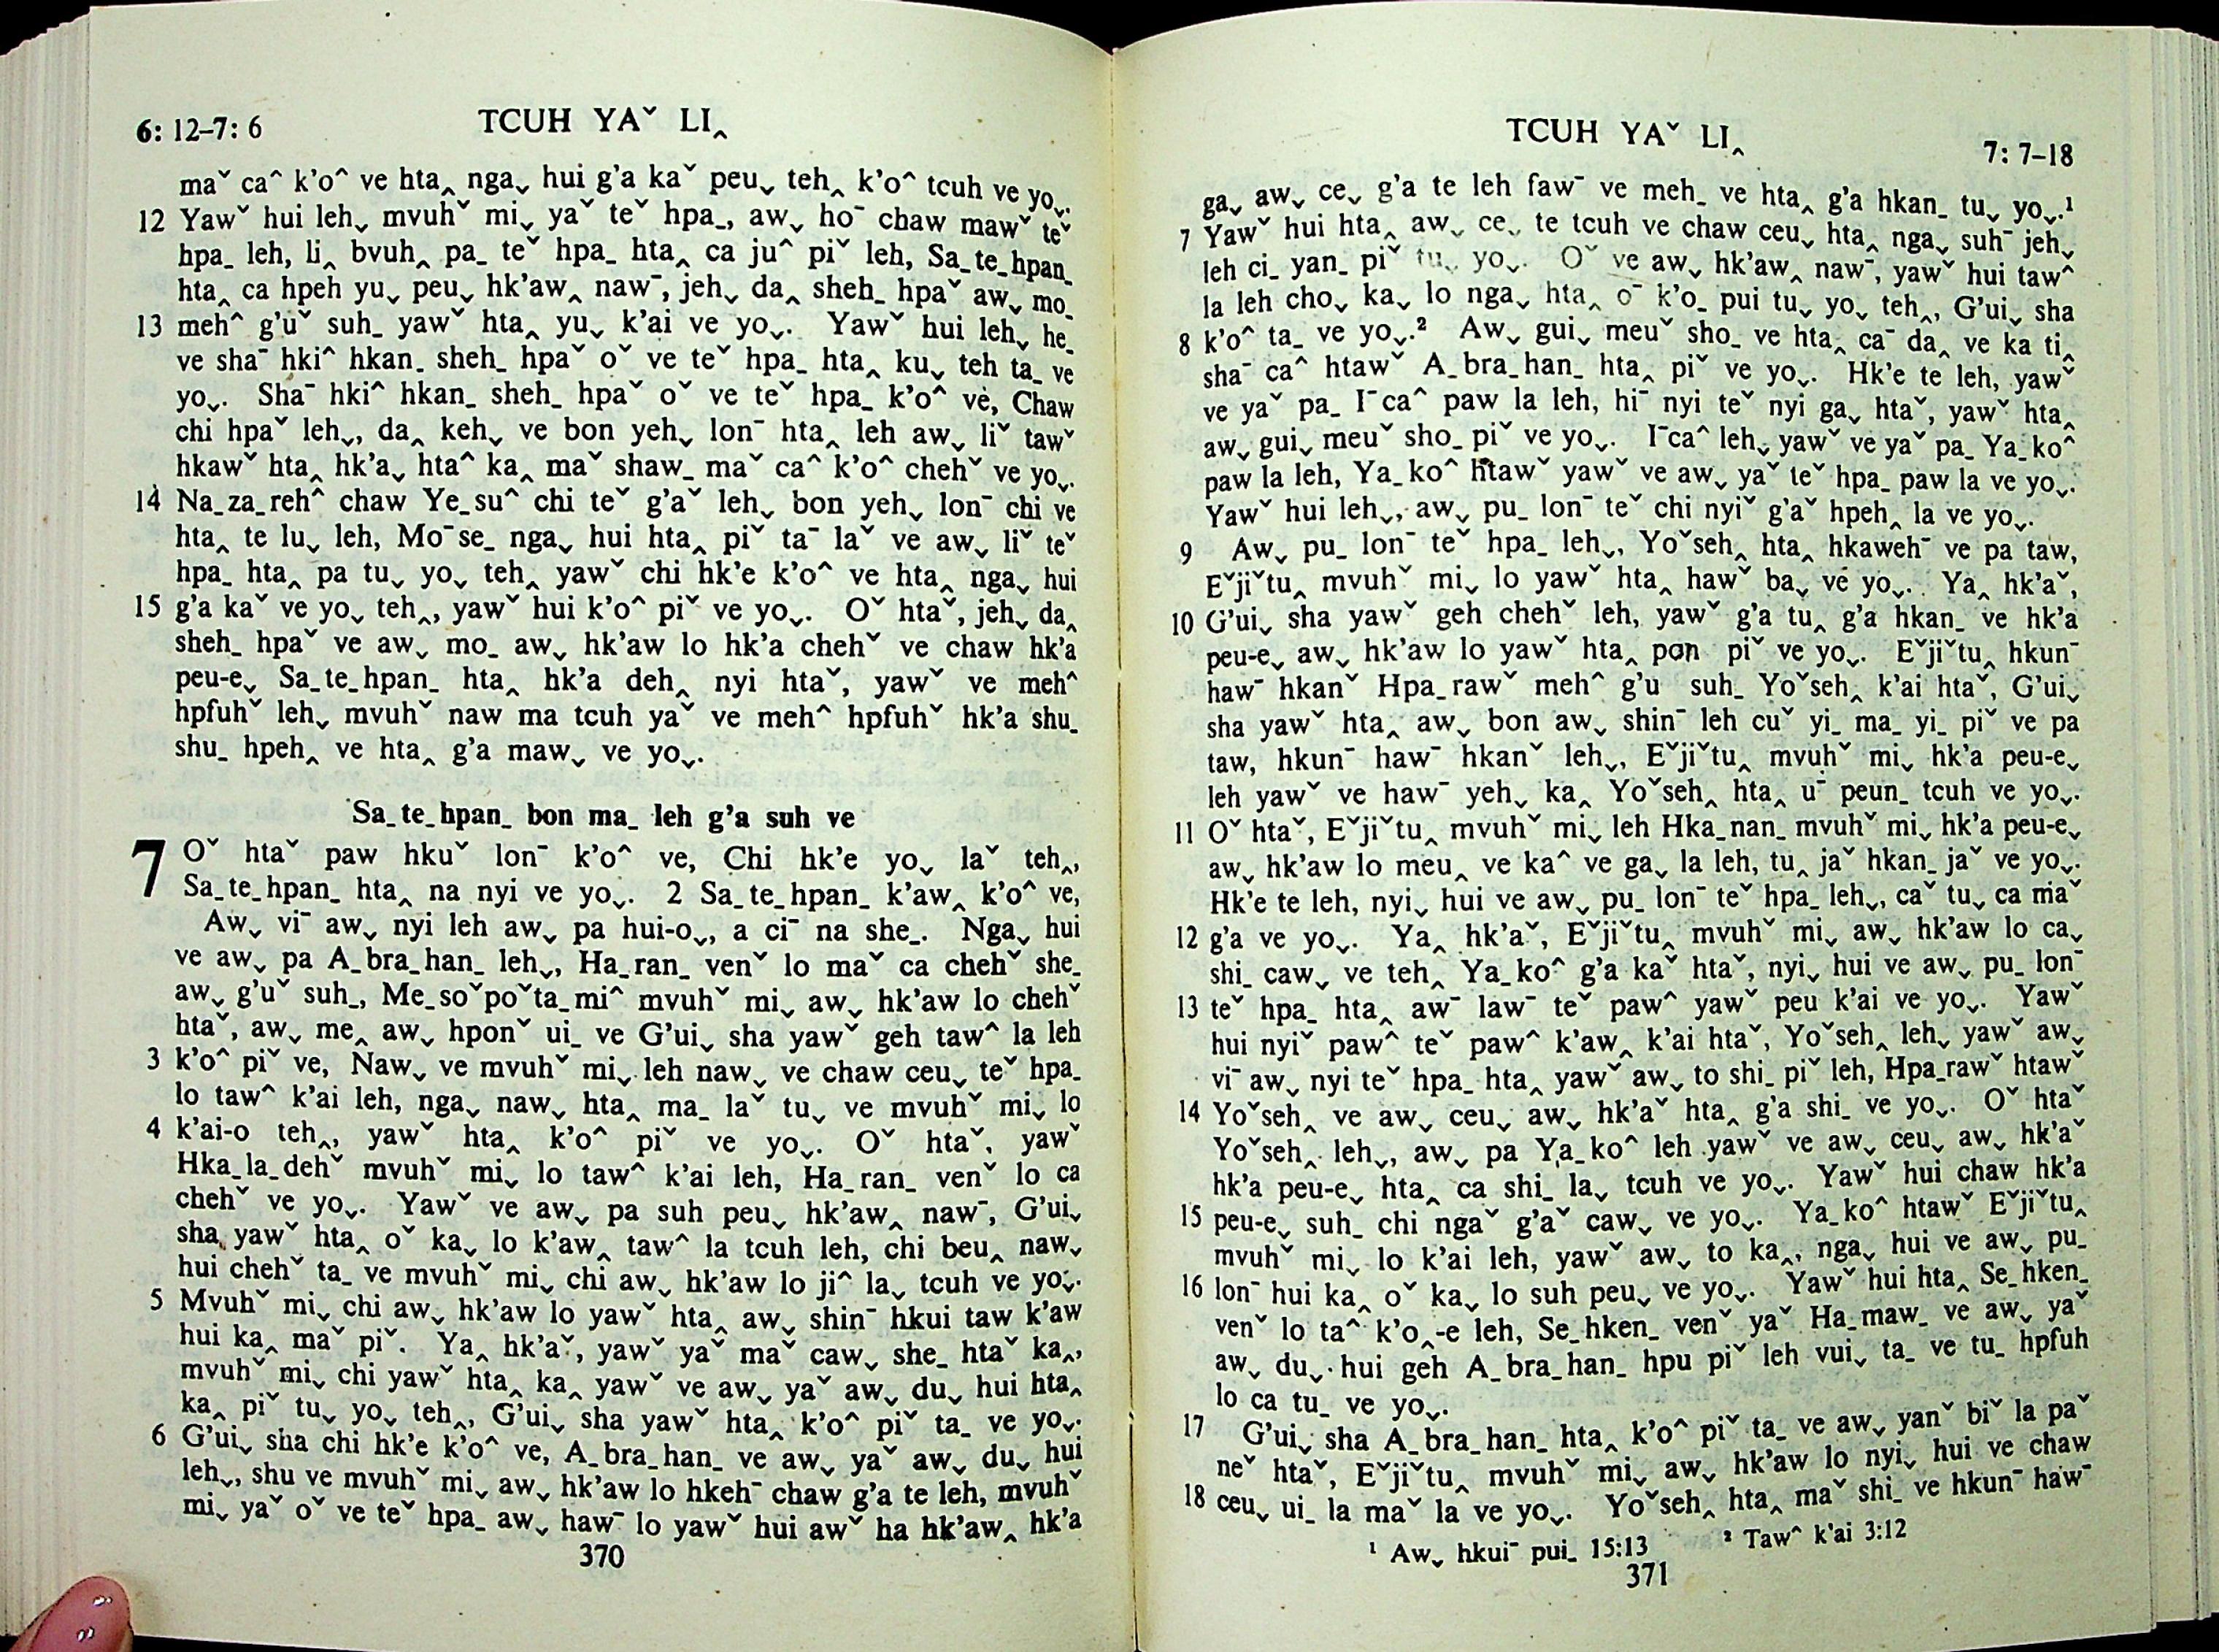 6: 12–7: 6
TCUH YAˇ LI‸
maˇ caˆ k'oˆ ve hta‸ nga⌄ hui g'a kaˇ peu⌄ teh‸ k'oˆ tcuh ve yo⌄.
12 Yawˇ hui leh⌄ mvuhˇ mi⌄ yaˇ teˇ hpa_, aw⌄ hoˉ chaw mawˇ teˇ
hpa_ leh, li‸ bvuh‸ pa_ teˇ hpa_ hta‸ ca juˆ piˇ leh, Sa_te_hpan_
hta‸ ca hpeh yu⌄ peu⌄ hk'aw‸ nawˉ, jeh⌄ da‸ sheh_ hpaˇ aw⌄ mo_
13 mehˆ g'uˇ suh_ yawˇ hta‸ yu⌄ k'ai ve yo⌄. Yawˇ hui leh⌄ he_
ve shaˉ hkiˆ hkan_ sheh_ hpaˇ oˇ ve teˇ hpa_ hta‸ ku⌄ teh ta_ ve
yo⌄. Shaˉ hkiˆ hkan_ sheh_ hpaˇ oˇ ve teˇ hpa_ k'oˆ ve, Chaw
chi hpaˇ leh⌄, da‸ keh⌄ ve bon yeh⌄ lonˉ hta‸ leh aw⌄ liˇ tawˇ
hkawˇ hta‸ hk'a⌄ htaˆ ka‸ maˇ shaw_ maˇ caˆ k'oˆ chehˇ ve yo⌄.
14 Na_za_rehˆ chaw Ye_suˆ chi teˇ g'aˇ leh⌄ bon yeh⌄ lonˉ chi ve
hta‸ te lu⌄ leh, Moˉse_ nga⌄ hui hta‸ piˇ taˉ laˇ ve aw⌄ liˇ teˇ
hpa_ hta‸ pa tu⌄ yo⌄ teh‸ yawˇ chi hk'e k'oˆ ve hta‸ nga⌄ hui
15 g'a kaˇ ve yo⌄ teh‸, yawˇ hui k'oˆ piˇ ve yo⌄. Oˇ htaˇ, jeh⌄ da‸
sheh_ hpaˇ ve aw⌄ mo_ aw⌄ hk'aw lo hk'a chehˇ ve chaw hk'a
peu-e⌄ Sa_te_hpan_ hta‸ hk'a deh‸ nyi htaˇ, yawˇ ve mehˆ
hpfuhˇ leh⌄ mvuhˇ naw ma tcuh yaˇ ve mehˆ hpfuhˇ hk'a shu_
shu_ hpeh‸ ve hta‸ g'a maw⌄ ve yo⌄.
Sa_te_hpan_ bon ma_ leh g'a suh ve
7 Oˇ htaˇ paw hkuˇ lonˉ k'oˆ ve, Chi hk'e yo⌄ laˇ teh‸,
Sa_te_hpan_ hta‸ na nyi ve yo⌄. 2 Sa_te_hpan_ k'aw‸ k'oˆ ve,
Aw⌄ viˉ aw⌄ nyi leh aw⌄ pa hui-o⌄, a ciˉ na she_. Nga⌄ hui
ve aw⌄ pa A_bra_han_ leh⌄, Ha_ran_ venˇ lo maˇ ca chehˇ she_
aw⌄ g'uˇ suh_, Me_soˇpoˇta_miˆ mvuhˇ mi⌄ aw⌄ hk'aw lo chehˇ
htaˇ, aw⌄ me‸ aw⌄ hponˇ ui_ ve G'ui⌄ sha yawˇ geh tawˆ la leh
3 k'oˆ piˇ ve, Naw⌄ ve mvuhˇ mi⌄ leh naw⌄ ve chaw ceu⌄ teˇ hpa_
lo tawˆ k'ai leh, nga⌄ naw⌄ hta‸ ma_ laˇ tu⌄ ve mvuhˇ mi⌄ lo
4 k'ai-o teh‸, yawˇ hta‸ k'oˆ piˇ ve yo⌄. Oˇ htaˇ, yawˇ
Hka_la_dehˇ mvuhˇ mi⌄ lo tawˆ k'ai leh, Ha_ran_ venˇ lo ca
chehˇ ve yo⌄. Yawˇ ve aw⌄ pa suh peu⌄ hk'aw‸ nawˉ, G'ui⌄
sha yawˇ hta‸ oˇ ka⌄ lo k'aw‸ tawˆ la tcuh leh, chi beu‸ naw⌄
hui chehˇ ta_ ve mvuhˇ mi⌄ chi aw⌄ hk'aw lo jiˆ la⌄ tcuh ve yo⌄.
5 Mvuhˇ mi⌄ chi aw⌄ hk'aw lo yawˇ hta‸ aw⌄ shinˉ hkui taw k'aw
hui ka‸ maˇ piˇ. Ya‸ hk'aˇ, yawˇ yaˇ maˇ caw⌄ she_ htaˇ ka‸,
mvuhˇ mi⌄ chi yawˇ hta‸ ka‸ yawˇ ve aw⌄ yaˇ aw⌄ du⌄ hui hta‸
ka‸ piˇ tu⌄ yo⌄ teh‸, G'ui⌄ sha yawˇ hta‸ k'oˆ piˇ ta_ ve yo⌄.
6 G'ui⌄ sha chi hk'e k'oˆ ve, A_bra_han_ ve aw⌄ yaˇ aw⌄ du⌄ hui
leh⌄, shu ve mvuhˇ mi⌄ aw⌄ hk'aw lo hkehˉ chaw g'a te leh, mvuhˇ
mi⌄ yaˇ oˇ ve teˇ hpa_ aw⌄ hawˉ lo yawˇ hui awˇ ha hk'aw‸ hk'a
370
TCUH YAˇ LI‸
7: 7–18
ga⌄ aw⌄ ce⌄ g'a te leh fawˉ ve meh_ ve hta‸ g'a hkan_ tu⌄ yo⌄.¹
7 Yawˇ hui hta‸ aw⌄ ce⌄ te tcuh ve chaw ceu⌄ hta‸ nga⌄ suhˉ jeh⌄
leh ci_ yan_ piˇ tu⌄ yo⌄. Oˇ ve aw⌄ hk'aw‸ nawˉ, yawˇ hui tawˆ
la leh cho⌄ ka⌄ lo nga⌄ hta‸ oˉ k'o_ pui tu⌄ yo⌄ teh‸, G'ui⌄ sha
8 k'oˆ ta_ ve yo⌄.² Aw⌄ gui⌄ meuˇ sho_ ve hta‸ caˉ da‸ ve ka ti‸
shaˉ caˆ htawˇ A_bra_han_ hta‸ piˇ ve yo⌄. Hk'e te leh, yawˇ
ve yaˇ pa_ Iˉcaˆ paw la leh, hiˉ nyi teˇ nyi ga⌄ htaˇ, yawˇ hta‸
aw⌄ gui⌄ meuˇ sho_ piˇ ve yo⌄. Iˉcaˆ leh⌄ yawˇ ve yaˇ pa_ Ya_koˆ
paw la leh, Ya_koˆ htawˇ yawˇ ve aw⌄ yaˇ teˇ hpa_ paw la ve yo⌄.
Yawˇ hui leh⌄, aw⌄ pu_ lonˉ teˇ chi nyiˇ g'aˇ hpeh‸ la ve yo⌄.
9 Aw⌄ pu_ lonˉ teˇ hpa_ leh⌄, Yoˇseh‸ hta‸ hkawehˉ ve pa taw,
Eˇjiˇtu‸ mvuhˇ mi⌄ lo yawˇ hta‸ hawˇ ba⌄ ve yo⌄. Ya‸ hk'aˇ,
10 G'ui⌄ sha yawˇ geh chehˇ leh, yawˇ g'a tu‸ g'a hkan_ ve hk'a
peu-e⌄ aw⌄ hk'aw lo yawˇ hta‸ pon piˇ ve yo⌄. Eˇjiˇtu‸ hkunˉ
hawˉ hkanˇ Hpa_rawˇ mehˆ g'u suh_ Yoˇseh‸ k'ai htaˇ, G'ui⌄
sha yawˇ hta‸ aw⌄ bon aw⌄ shinˉ leh cuˇ yi_ ma_ yi_ piˇ ve pa
taw, hkunˉ hawˉ hkanˇ leh⌄, Eˇjiˇtu‸ mvuhˇ mi⌄ hk'a peu-e⌄
leh yawˇ ve hawˉ yeh⌄ ka‸ Yoˇseh‸ hta‸ uˉ peun_ tcuh ve yo⌄.
11 Oˇ htaˇ, Eˇjiˇtu‸ mvuhˇ mi⌄ leh Hka_nan_ mvuhˇ mi⌄ hk'a peu-e⌄
aw⌄ hk'aw lo meu‸ ve kaˆ ve ga⌄ la leh, tu‸ jaˇ hkan_ jaˇ ve yo⌄.
Hk'e te leh, nyi⌄ hui ve aw⌄ pu_ lonˉ teˇ hpa_ leh⌄, caˇ tu⌄ ca maˇ
12 g'a ve yo⌄. Ya‸ hk'aˇ, Eˇjiˇtu‸ mvuhˇ mi⌄ aw⌄ hk'aw lo ca⌄
shi_ caw⌄ ve teh‸ Ya_koˆ g'a kaˇ htaˇ, nyi⌄ hui ve aw⌄ pu_ lonˉ
13 teˇ hpa_ hta‸ awˉ lawˉ teˇ pawˆ yawˇ peu k'ai ve yo⌄. Yawˇ
hui nyiˇ pawˆ teˇ pawˆ k'aw‸ k'ai htaˇ, Yoˇseh‸ leh⌄ yawˇ aw⌄
viˉ aw⌄ nyi teˇ hpa_ hta‸ yawˇ aw⌄ to shi_ piˇ leh, Hpa_rawˇ htawˇ
14 Yoˇseh‸ ve aw⌄ ceu⌄ aw⌄ hk'aˇ hta‸ g'a shi_ ve yo⌄. Oˇ htaˇ
Yoˇseh‸ leh⌄, aw⌄ pa Ya_koˆ leh yawˇ ve aw⌄ ceu⌄ aw⌄ hk'aˇ
hk'a peu-e⌄ hta‸ ca shi_ la⌄ tcuh ve yo⌄. Yawˇ hui chaw hk'a
15 peu-e⌄ suh_ chi ngaˇ g'aˇ caw⌄ ve yo⌄. Ya_koˆ htawˇ Eˇjiˇtu‸
mvuhˇ mi⌄ lo k'ai leh, yawˇ aw⌄ to ka‸, nga⌄ hui ve aw⌄ pu_
16 lonˉ hui ka‸ oˇ ka⌄ lo suh peu⌄ ve yo⌄. Yawˇ hui hta‸ Se_hken_
venˇ lo taˆ k'o‸-e leh, Se_hken_ venˇ yaˇ Ha_maw_ ve aw⌄ yaˇ
aw⌄ du⌄ hui geh A_bra_han_ hpu piˇ leh vui⌄ ta_ ve tu_ hpfuh
lo ca tu_ ve yo⌄.
17 G'ui⌄ sha A_bra_han_ hta‸ k'oˆ piˇ ta_ ve aw⌄ yanˇ biˇ la paˇ
neˇ htaˇ, Eˇjiˇtu‸ mvuhˇ mi⌄ aw⌄ hk'aw lo nyi⌄ hui ve chaw
18 ceu⌄ ui_ la maˇ la ve yo⌄. Yoˇseh‸ hta‸ maˇ shi_ ve hkunˉ hawˉ
¹ Aw⌄ hkuiˉ pui_ 15:13 ² Tawˆ k'ai 3:12
371